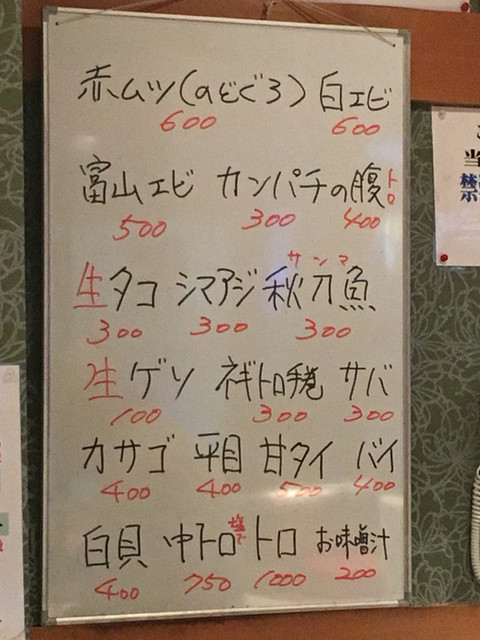 赤ムツ(のどぐろ) 白エビ
600 600
富山エビ カンパチの腹トロ
500 300 400
サンマ
生タコ シマアジ 秋刀魚
300 300 300
生ゲソ ネギトロ巻 サバ
100 300 300
カサゴ 平目 甘タイ バイ
400 400 500 400
白貝 中トロ 塩で トロ お味噌汁
400 750 1000 200
当
禁